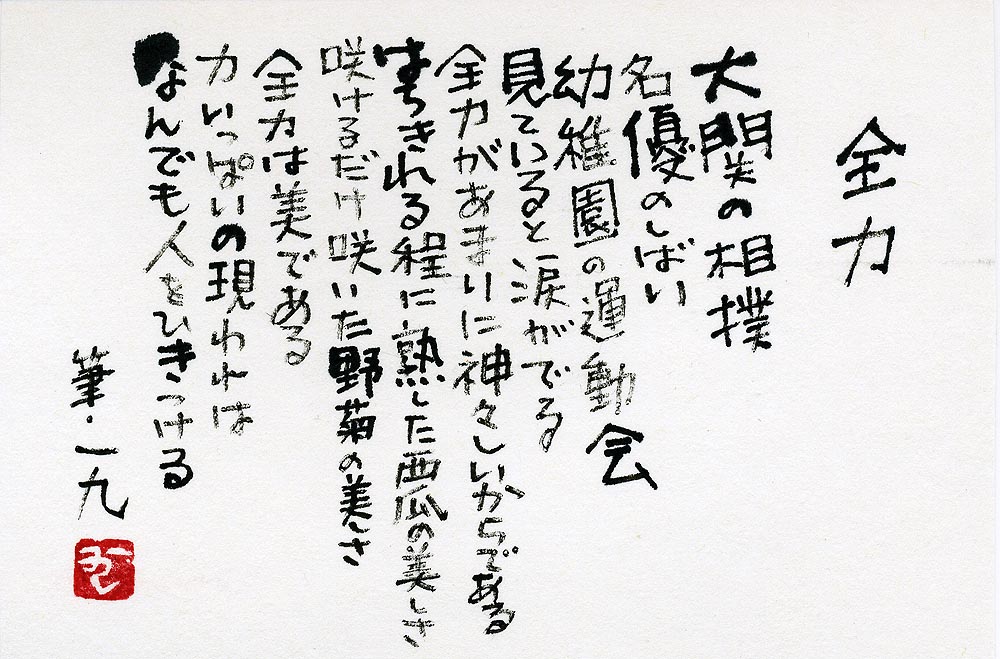 全力
大関の相撲
名優のしばい
幼稚園の運動会
見ていると涙がでる
全力があまりに神々しいからである
はちきれる程に熟した西瓜の美しさ
咲けるだけ咲いた野菊の美しさ
全力は美である
力いっぱいの現われは
なんでも人をひきつける
筆・一九